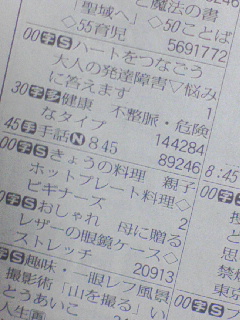 と魔法の書
聖域へ」◇50ことば
◇55育児 5691772
00手Sハートをつなごう
大人の発達障害▽悩み
に答えます 1
30手多健康 不整脈・危険
なタイプ 144284
45手 手話N845 89246
00手Sきょうの料理 親子
ホットプレート料理◇
ビギナーズ 2
00手Sおしゃれ 母に贈る
レザーの眼鏡ケース◇
ストレッチ 20913
手S趣味・一眼レフ風景
撮影術「山を撮る」い
とうあいこ
人生
8:45
00